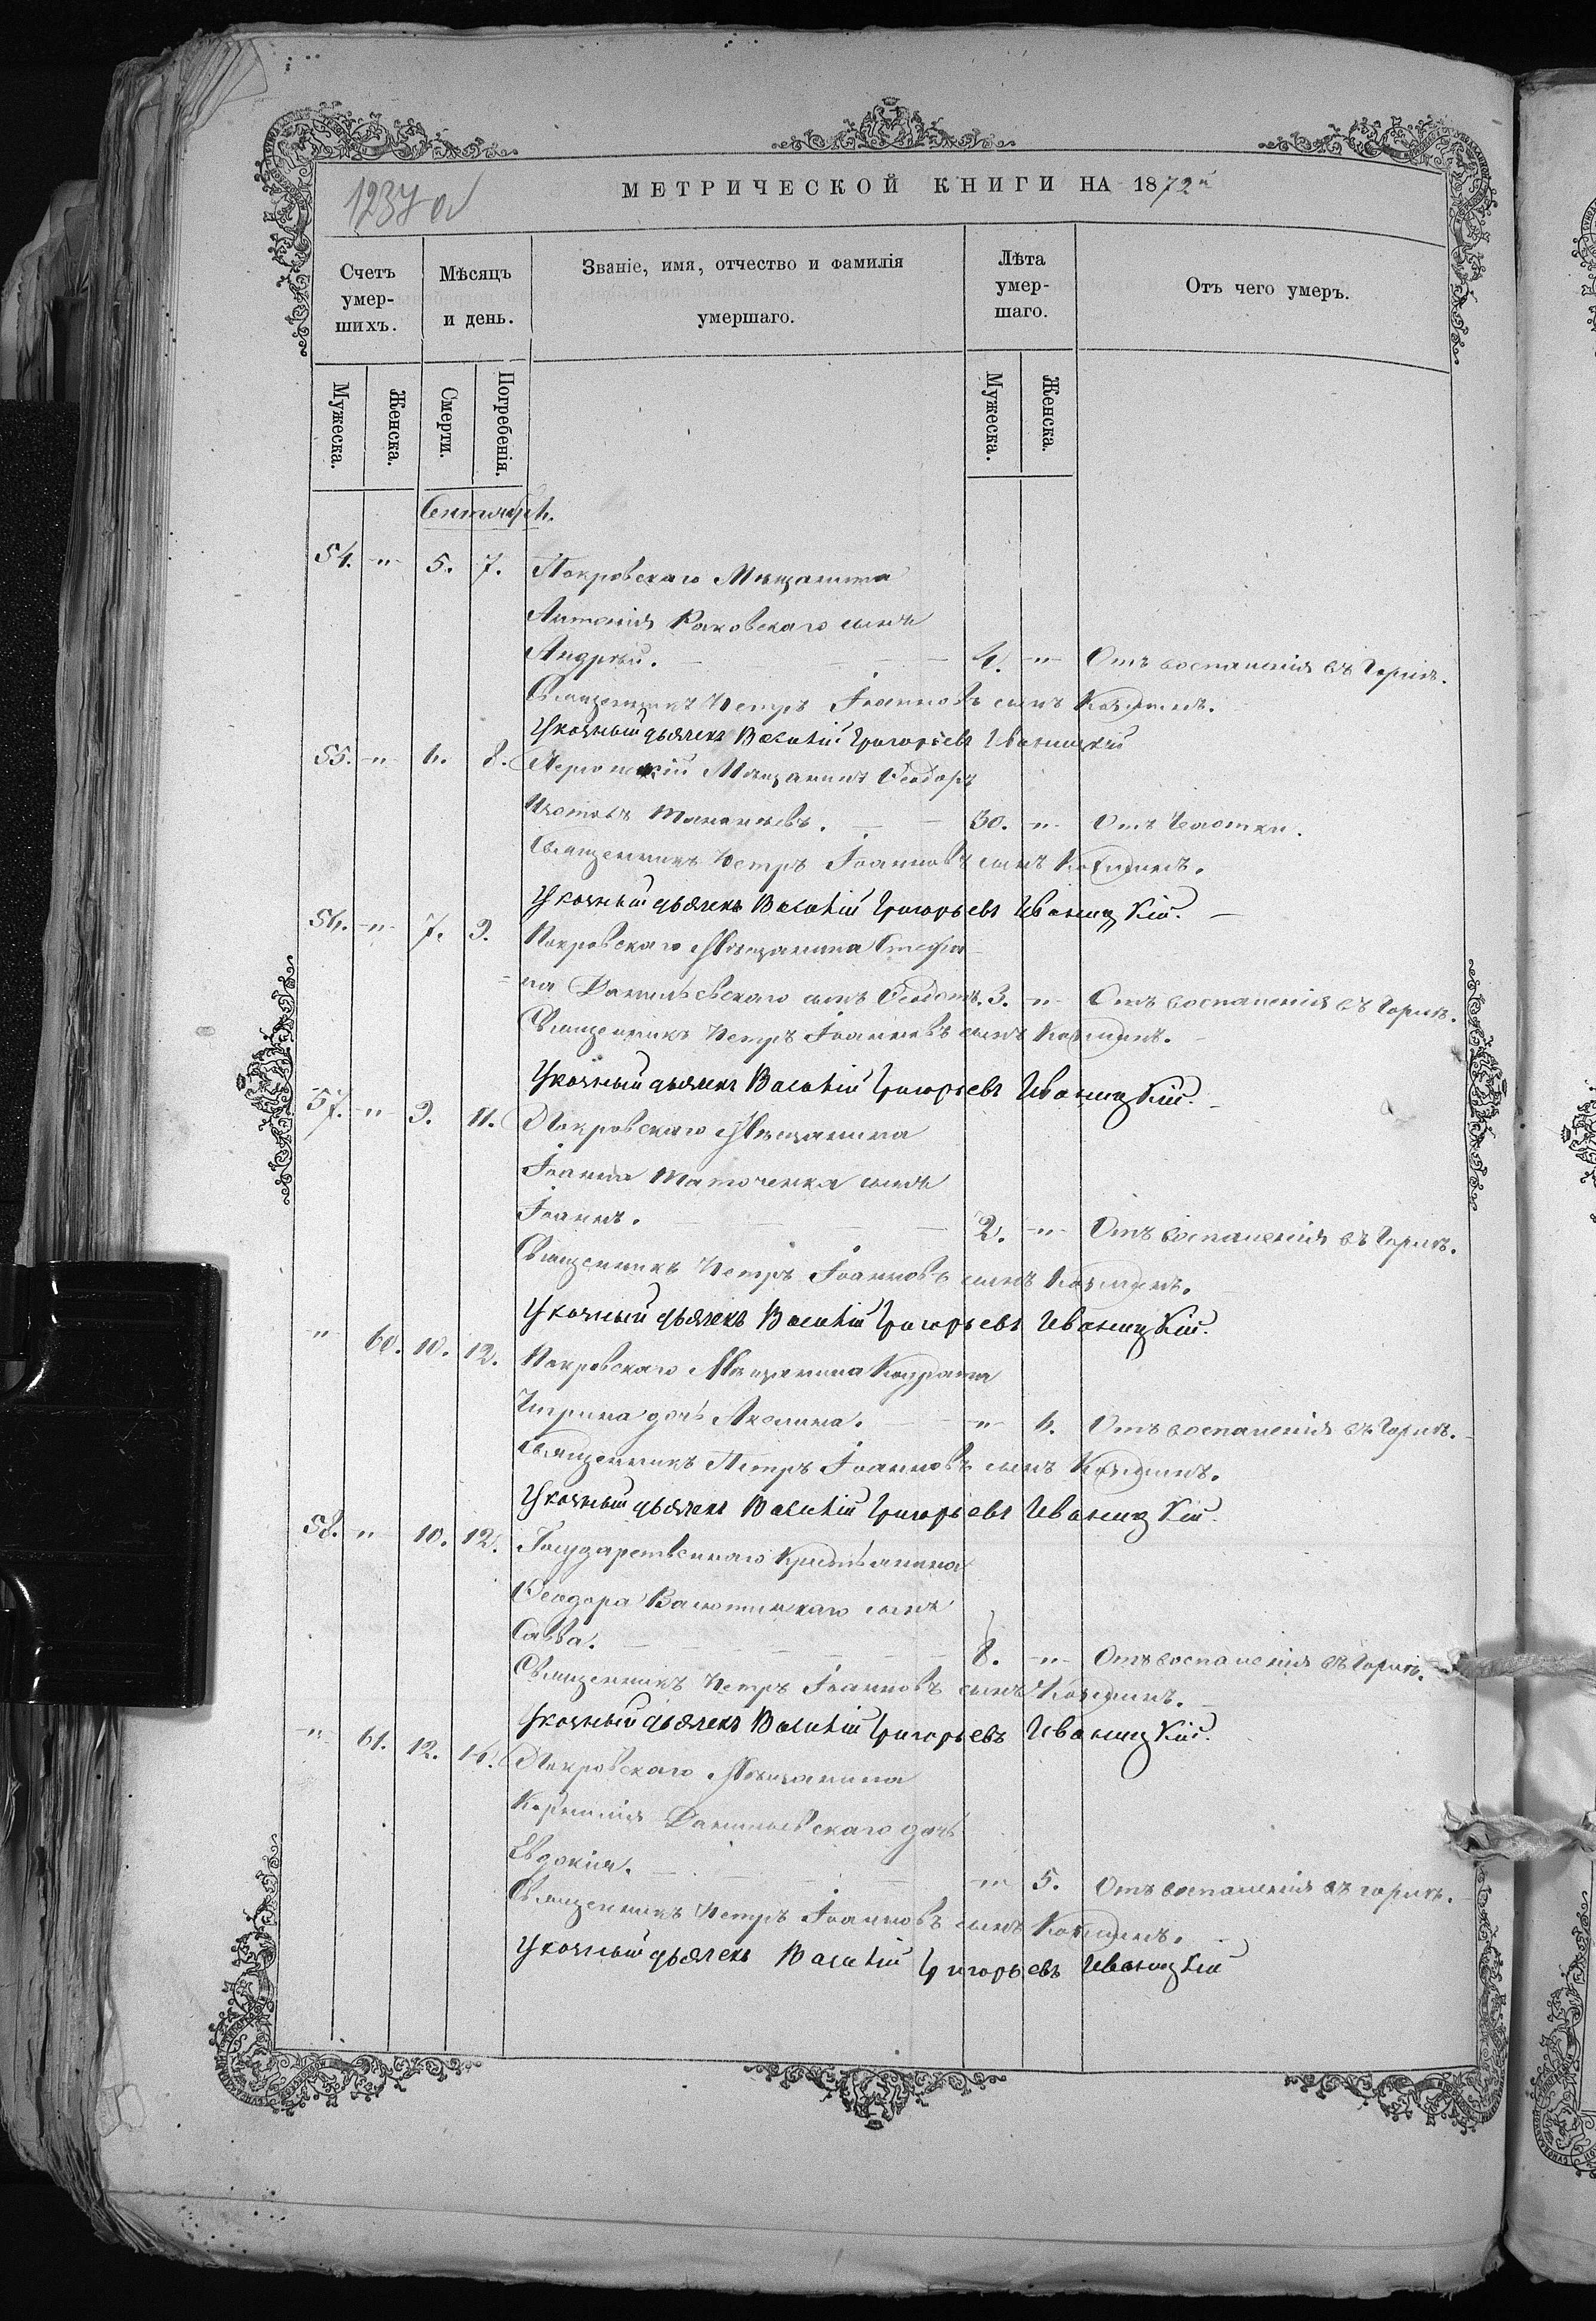 МЕТРИЧЕСКОЙ КНИГИ НА 1872й
1237 об
Счетъ умер-шихъ.
Мѣсяцъ и день.
Званіе, имя, отчество и фамилія умершаго.
Лѣта умер-шаго.
Отъ чего умеръ.
Мужеска.
Женска.
Смерти.
Погребенія.
Мужеска.
Женска.
Сентябрь.
54. " 5. 7. Покровскаго Мѣщанина
Антонія Раковскаго сынъ
Андрей. 4. " Отъ воспаленія въ горлѣ.
Священникъ Петръ Іоанновъ сынъ
Указный дьячекъ Василій Григорьевъ Иваницкій
55. " 6. 8. Мѣщанинъ Ѳеодоръ
30. " Отъ Чахотки.
Священникъ Петръ Іоанновъ сынъ
Указный дьячекъ Василій Григорьевъ Иваницкій.
56. " 7. 9. Покровскаго Мѣщанина Стефа-
на Данильевскаго сынъ Ѳеодотъ. 3. " Отъ воспаленія въ горлѣ.
Священникъ Петръ Іоанновъ сынъ
Указный дьячекъ Василій Григорьевъ Иваницкій.
57. " 9. 11. Покровскаго Мѣщанина
Іоанна сынъ
Іоаннъ. 2. " Отъ воспаленія въ горлѣ.
Священникъ Петръ Іоанновъ сынъ
Указный дьячекъ Василій Григорьевъ Иваницкій.
" 60. 10. 12. Покровскаго Мѣщанина Кодрата
дочь Акилина. " 6. Отъ воспаленія въ горлѣ.
Священникъ Петръ Іоанновъ сынъ
Указный дьячекъ Василій Григорьевъ Иваницкій.
58. " 10. 12. Государственнаго Крестьянина
Ѳеодора сынъ
Савва. 8. " Отъ воспаленія въ горлѣ.
Священникъ Петръ Іоанновъ сынъ
Указный дьячекъ Василій Григорьевъ Иваницкій.
" 61. 12. 14. Покровскаго Мѣщанина
Корнилія Данильевскаго дочь
Евдокія. " 5. Отъ воспаленія въ горлѣ.
Священникъ Петръ Іоанновъ сынъ
Указный дьячекъ Василій Григорьевъ Иваницкій